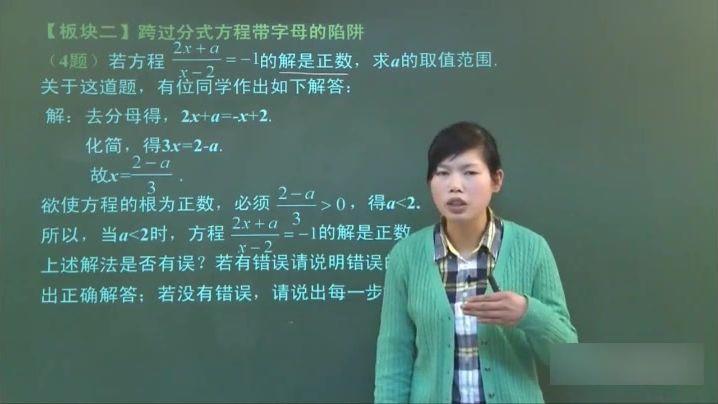 【板块二】跨过分式方程带字母的陷阱
(4题)若方程 (2x+a)/(x-2) = -1的解是正数,求a的取值范围.
关于这道题,有位同学作出如下解答:
解:去分母得,2x+a=-x+2.
化简,得3x=2-a.
故x= (2-a)/3 .
欲使方程的根为正数,必须 (2-a)/3 >0,得a<2.
所以,当a<2时,方程 (2x+a)/(x-2) = -1的解是正数
上述解法是否有误?若有错误请说明错误的
出正确解答;若没有错误,请说出每一步